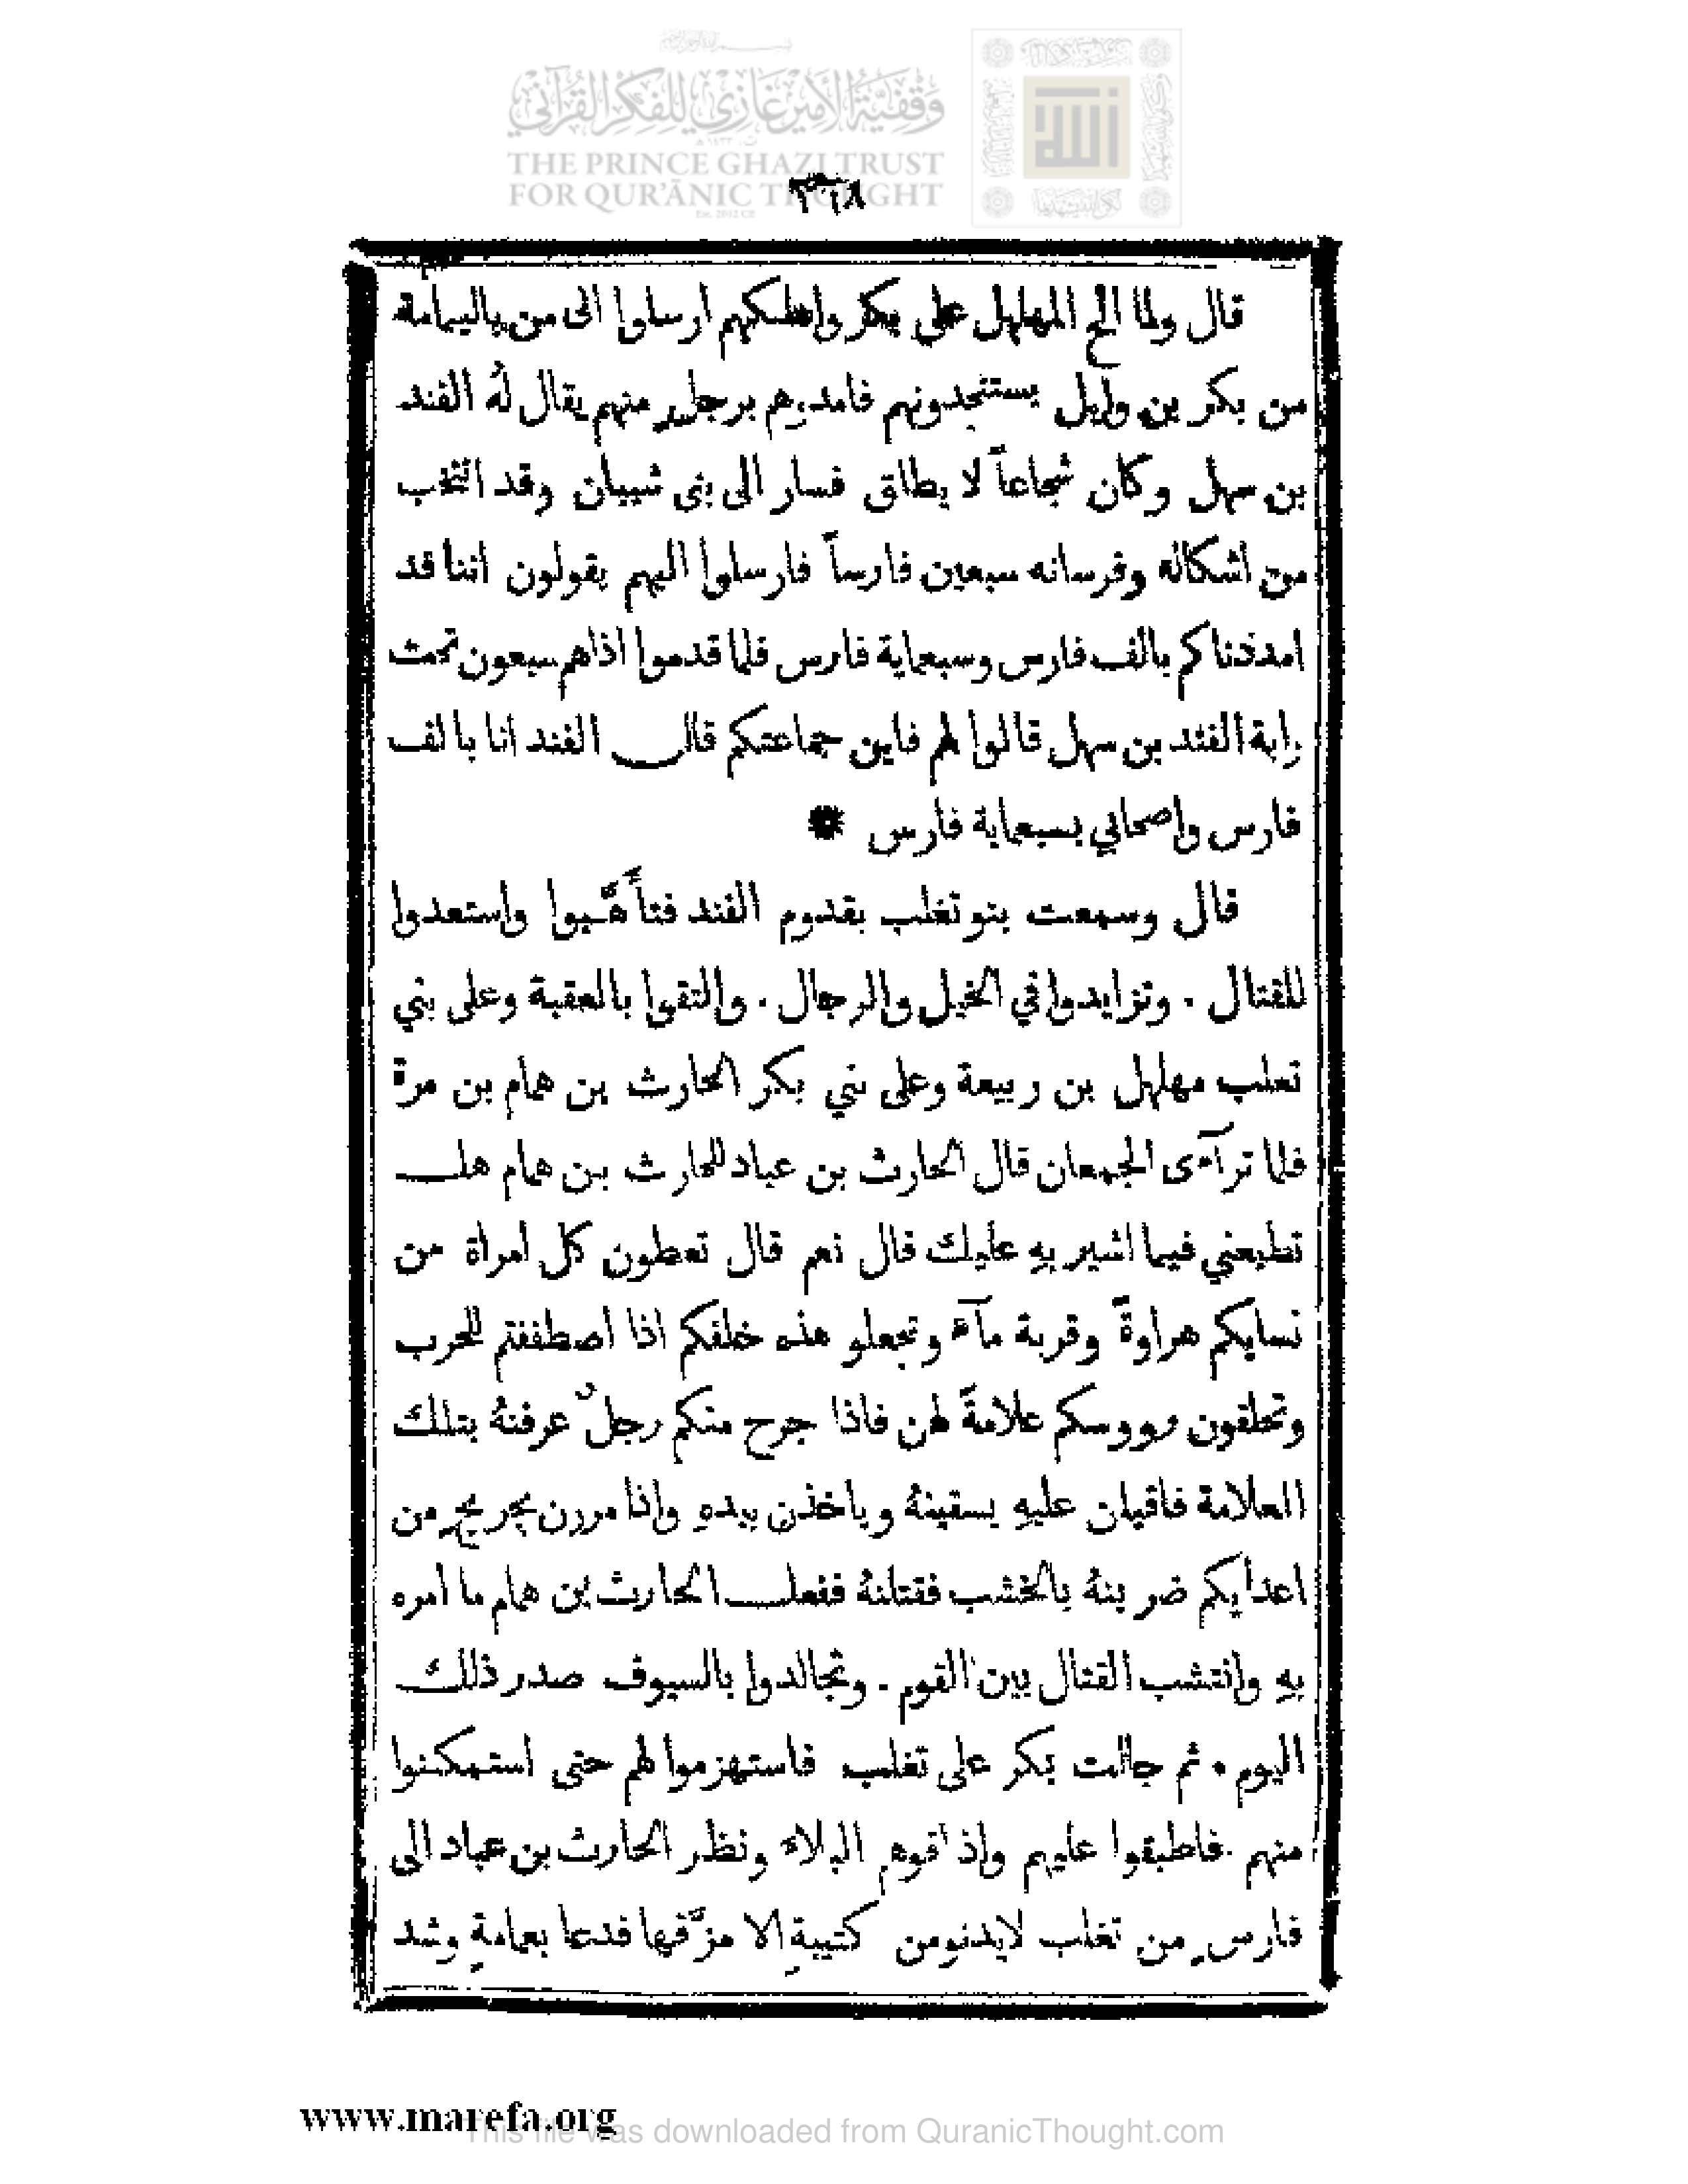 وقفية الأمير غازي للفكر القرآني
THE PRINCE GHAZI TRUST
FOR QUR'ĀNIC THOUGHT
Est. 2012 CE
٣٦٨
قال ولما الح المهلهل على بكر وانهكهم ارسلوا الى من باليمامة
من بكر بن وايل يستنجدونهم فامدوهم برجل منهم يقال لهُ الفند
بن سهل وكان شجاعاً لا يطاق فسار الى بنى شيبان وقد انتخب
من اشكاله وفرسانه سبعين فارساً فارسلوا اليهم يقولون اننا قد
امددناكم بالف فارس وسبعماية فارس فلما قدموا اذاهم سبعون تحت
راية الفند بن سهل قالوا لهم فاين جماعتكم قال الفند انا بالف
فارس واصحابي بسبعماية فارس *
قال وسمعت بنو تغلب بقدوم الفند فتأَهَّبوا واستعدوا
للقتال . وتزايدوا في الخيل والرجال . والتقوا بالعقبة وعلى بني
تعلب مهلهل بن ربيعة وعلى بني بكر الحارث بن همام بن مرة
فلما ترآءى الجمعان قال الحارث بن عباد للحارث بن همام هل
تطيعني فيما اشير بهِ عليك قال نعم قال تعطون كل امراة من
نسايكم هراوةً وقربة مآء وتجعلو هذه خلفكم اذا اصطففتم للحرب
وتحلقون رووسكم علامةً لهن فاذا جرح منكم رجلٌ عرفنهُ بتلك
العلامة فاقبلن عليهِ يسقينهُ وياخذن بيدهِ واذا مررن بجريحٍ من
اعدايكم ضربنهُ بالخشب فقتلنهُ ففعل الحارث بن همام ما امره
بهِ وانتشب القتال بين القوم . وتجالدوا بالسيوف صدر ذلك
اليوم . ثم جالت بكر على تغلب فاستهزموا لهم حتى استمكنوا
منهم . فاطبقوا عليهم واذاقوهم البلاء ونظر الحارث بن عباد الى
فارسٍ من تغلب لايدنومن كتيبةٍ الا مزَّقها فدعا بعمامةٍ وشد
www.marefa.org
This file was downloaded from QuranicThought.com